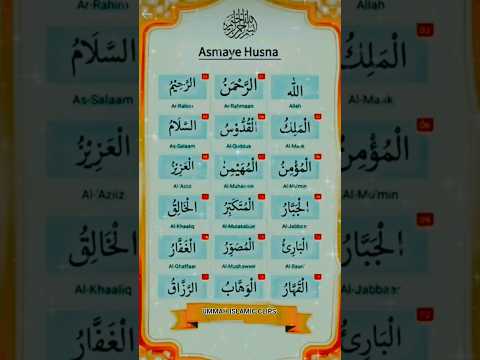 بسم الله الرحمن الرحيم
Asmaye Husna
اللّٰه الرَّحْمٰنُ الرَّحِيْمُ
Ar-Rahim Ar-Rahmaan Allah
الْمَلِكُ الْقُدُّوْسُ السَّلَامُ
As-Salaam Al-Quddus Al-Maalik
الْمُؤْمِنُ الْمُهَيْمِنُ الْعَزِيْزُ
Al-'Aziiz Al-Muhaimin Al-Mu'min
الْجَبَّارُ الْمُتَكَبِّرُ الْخَالِقُ
Al-Khaaliq Al-Mutakabbir Al-Jabbaar
الْبَارِئُ الْمُصَوِّرُ الْغَفَّارُ
Al-Ghaffaar Al-Mushawwir Al-Baari'
الْقَهَّارُ الْوَهَّابُ الرَّزَّاقُ
UMMAH ISLAMIC CLIPS
Ar-Rahim
السَّلَامُ
As-Salaam
الْعَزِيْزُ
Al-'Aziiz
الْخَالِقُ
Al-Khaaliq
الْغَفَّارُ
Allah
الْمَلِكُ
Al-Maalik
الْمُؤْمِنُ
Al-Mu'min
الْجَبَّارُ
Al-Jabbaar
الْبَارِئُ